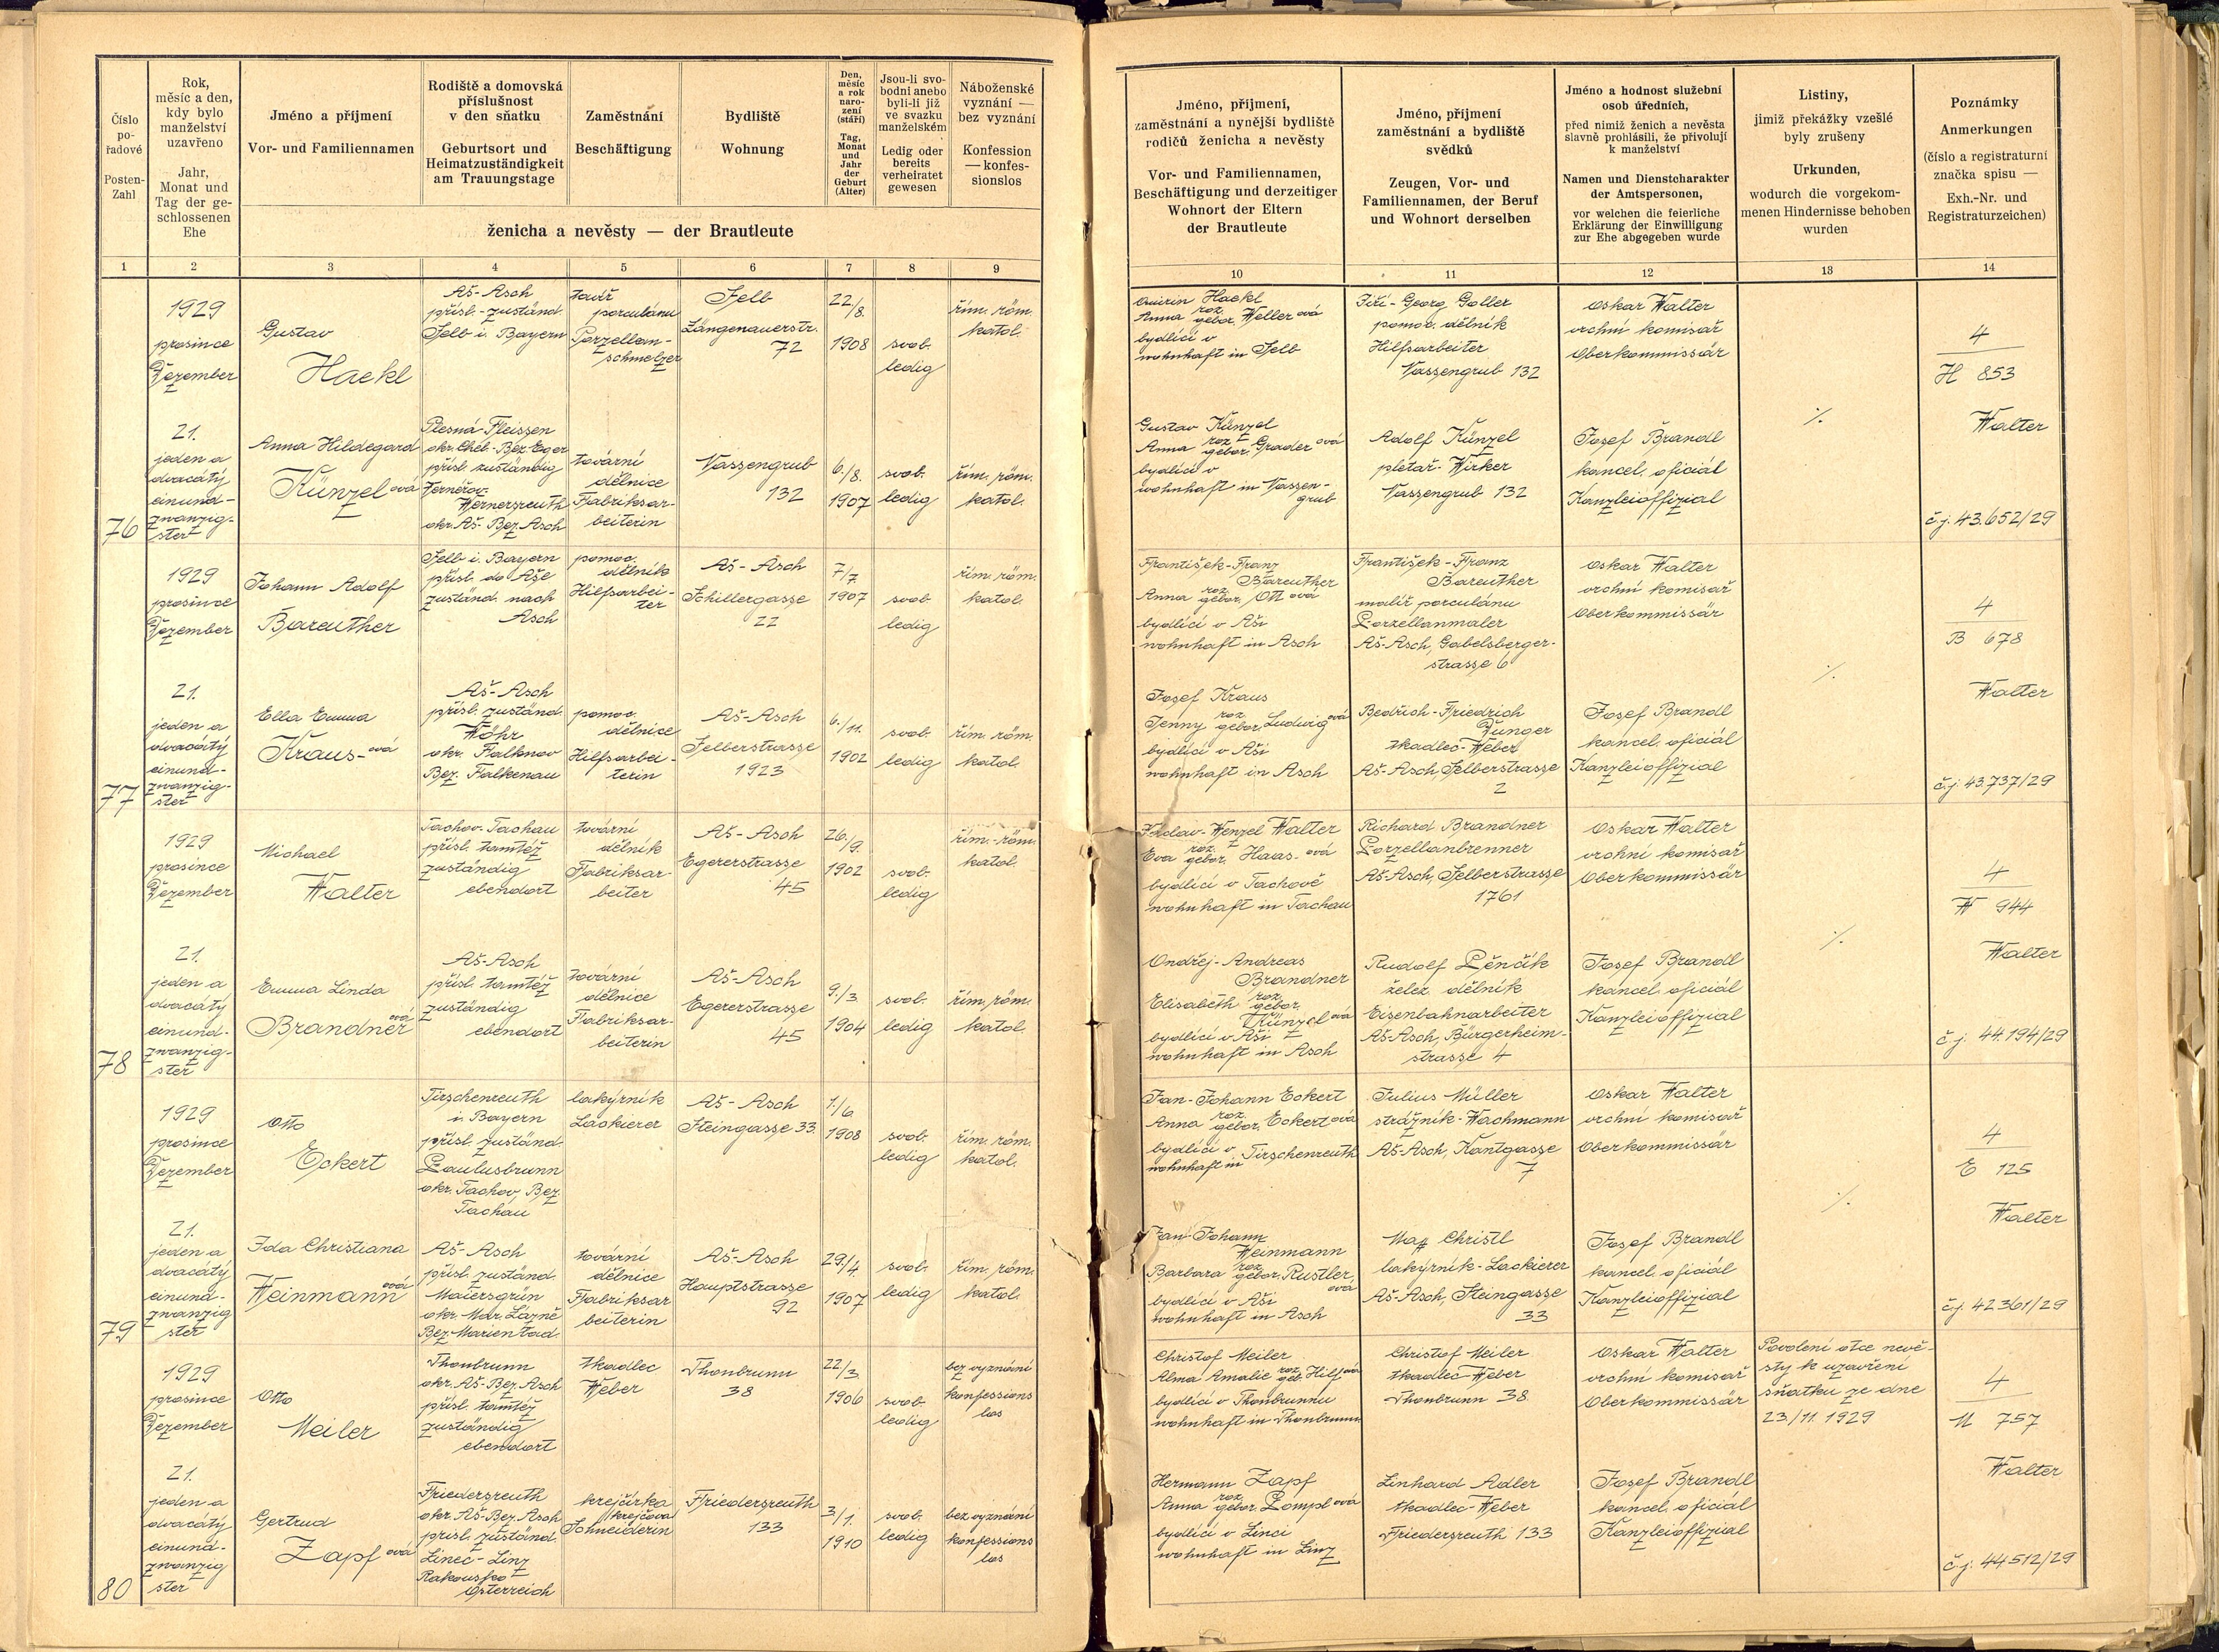 Číslo
po-
řadové
Posten-
Zahl
Rok,
měsíc a den,
kdy bylo
manželství
uzavřeno
Jahr,
Monat und
Tag der ge-
schlossenen
Ehe
Jméno a příjmení
Vor- und Familiennamen
Rodiště a domovská
příslušnost
v den sňatku
Geburtsort und
Heimatzuständigkeit
am Trauungstage
Zaměstnání
Beschäftigung
Bydliště
Wohnung
Den,
měsíc
a rok
naro-
zení
(stáří)
Tag,
Monat
und
Jahr
der
Geburt
(Alter)
Jsou-li svo-
bodni anebo
byli-li již
ve svazku
manželském
Ledig oder
bereits
verheiratet
gewesen
Náboženské
vyznání —
bez vyznání
Konfession
— konfes-
sionslos
ženicha a nevěsty — der Brautleute
1 2 3 4 5 6 7 8 9
Jméno, příjmení,
zaměstnání a nynější bydliště
rodičů ženicha a nevěsty
Vor- und Familiennamen,
Beschäftigung und derzeitiger
Wohnort der Eltern
der Brautleute
Jméno, příjmení
zaměstnání a bydliště
svědků
Zeugen, Vor- und
Familiennamen, der Beruf
und Wohnort derselben
Jméno a hodnost služební
osob úředních,
před nimiž ženich a nevěsta
slavně prohlásili, že přivolují
k manželství
Namen und Dienstcharakter
der Amtspersonen,
vor welchen die feierliche
Erklärung der Einwilligung
zur Ehe abgegeben wurde
Listiny,
jimiž překážky vzešlé
byly zrušeny
Urkunden,
wodurch die vorgekom-
menen Hindernisse behoben
wurden
Poznámky
Anmerkungen
(číslo a registraturní
značka spisu —
Exh.-Nr. und
Registraturzeichen)
10 11 12 13 14
76
1929
prosince
Dezember
21.
jeden a
dvacátý
einund-
zwanzig-
ster
Gustav
Hackl
Aš-Asch
přísl.-zuständ.
Selb i. Bayern
porculánu
Porzellan-
schmelzer
Selb
Längenauerstr.
72
22/8.
1908
svob.
ledig
řím. röm.
katol.
Quirin Hackl
Anna roz. gebor. Weller ová
bydlící v
wohnhaft in Selb
Jiří-Georg Goller
pomoc. dělník
Hilfsarbeiter
Nassengrub 132
Oskar Walter
vrchní komisař
Oberkommissär
4
H 853
Anna Hildegard
Künzel ová
Plesná-Fleissen
okr. Cheb.-Bez. Eger
přísl. zuständig
Vernéřov-
Wernersreuth
okr. Aš-Bez. Asch
tovární
dělnice
Fabriksar-
beiterin
Nassengrub
132
6./8.
1907
svob.
ledig
řím. röm.
katol.
Gustav Künzel
Anna roz. gebor. Grader ová
bydlící v
wohnhaft in Nassen-
grub
Adolf Künzel
pletař-Wirker
Nassengrub 132
Josef Brandl
kancel. oficiál
Kanzleioffizial
./.
Walter
č.j. 43.652/29
77
1929
prosince
Dezember
21.
jeden a
dvacátý
einund-
zwanzig-
ster
Johann Adolf
Bareuther
Selb i. Bayern
přísl. do Aše
zuständ. nach
Asch
pomoc.
dělník
Hilfsarbei-
ter
Aš-Asch
Schillergasse
22
7/7
1907
svob.
ledig
řím. röm.
katol.
František-Franz
Bareuther
Anna roz. gebor. Ott ová
bydlící v Aši
wohnhaft in Asch
František-Franz
Bareuther
malíř porculánu
Porzellanmaler
Aš-Asch, Gabelsberger-
strasse 6
Oskar Walter
vrchní komisař
Oberkommissär
4
B 678
Ella Emma
Kraus-ová
Aš-Asch
přísl. zuständ.
Wöhr
okr. Falknov
Bez. Falkenau
pomoc.
dělnice
Hilfsarbei-
terin
Aš-Asch
Selberstrasse
1923
6./11.
1902
svob.
ledig
řím. röm.
katol.
Josef Kraus
Jenny roz. gebor. Ludwig ová
bydlící v Aši
wohnhaft in Asch
Bedřich-Friedrich
Zunger
tkadlec-Weber
Aš-Asch, Selberstrasse
2
Josef Brandl
kancel. oficiál
Kanzleioffizial
./.
Walter
č.j. 43.737/29
78
1929
prosince
Dezember
21.
jeden a
dvacátý
einund-
zwanzig-
ster
Michael
Walter
Tachov-Tachau
přísl. tamtéž
zuständig
ebendort
tovární
dělník
Fabriksar-
beiter
Aš-Asch
Egererstrasse
45
26/9.
1902
svob.
ledig
řím.-röm.
katol.
Wenzel Walter
Eva roz. gebor. Haas-ová
bydlící v Tachově
wohnhaft in Tachau
Richard Brandner
Porzellanbrenner
Aš-Asch, Selberstrasse
1761
Oskar Walter
vrchní komisař
Oberkommissär
4
W 944
Emma Linda
Brandner ová
Aš-Asch
přísl. tamtéž
zuständig
ebendort
tovární
dělnice
Fabriksar-
beiterin
Aš-Asch
Egererstrasse
45
9./3
1904
svob.
ledig
řím. röm.
katol.
Ondřej-Andreas
Brandner
Elisabeth roz. gebor.
Künzel ová
bydlící v Aši
wohnhaft in Asch
Rudolf Pěnčík
želez. dělník
Eisenbahnarbeiter
Aš-Asch, Bürgerheim-
strasse 4
Josef Brandl
kancel. oficiál
Kanzleioffizial
./.
Walter
č.j. 44.194/29
79
1929
prosince
Dezember
21.
jeden a
dvacátý
einund-
zwanzig
ster
Otto
Eckert
Tirschenreuth
i. Bayern
přísl. zuständ.
Paulusbrunn
okr. Tachov, Bez.
Tachau
lakýrník
Lackierer
Aš-Asch
Steingasse 33.
1./6
1908
svob.
ledig
řím. röm.
katol.
Jan-Johann Eckert
Anna roz. gebor. Eckert ová
bydlící v
wohnhaft in Tirschenreuth
Julius Müller
strážník-Wachmann
Aš-Asch, Kantgasse
7
Oskar Walter
vrchní komisař
Oberkommissär
4
E 125
Ida Christiana
Weinmann ová
Aš-Asch
přísl. zuständ.
Maiersgrün
okr. Mar. Lázně
Bez. Marienbad
tovární
dělnice
Fabriksar
beiterin
Aš-Asch
Hauptstrasse
92
29./4
1907
svob.
ledig
řím. röm.
katol.
Jan-Johann
Weinmann
Barbara roz. gebor. Rustler,
ová
bydlící v Aši
wohnhaft in Asch
Max Christl
lakýrník-Lackierer
Aš-Asch, Steingasse
33
Josef Brandl
kancel. oficiál
Kanzleioffizial
./.
Walter
č.j. 42361/29
80
1929
prosince
Dezember
21.
jeden a
dvacátý
einund-
zwanzig
ster
Otto
Meiler
Thonbrunn
okr. Aš-Bez. Asch
přísl. tamtéž
zuständig
ebendort
tkadlec
Weber
Thonbrunn
38
22/3
1906
svob.
ledig
bez vyznání
konfessions
los
Christof Meiler
Alma Amalie roz. geb. Hilf ová
bydlící v Thonbrunnu
wohnhaft in Thonbrunn
Christof Meiler
tkadlec-Weber
Thonbrunn 38
Oskar Walter
vrchní komisař
Oberkommissär
Povolení otce nevě-
sty k uzavření
sňatku ze dne
23./11. 1929
4
M 757
Gertrud
Zapf ová
Friedersreuth
okr. Aš-Bez. Asch
přísl. zuständ.
Linec-Linz
Rakousko
Österreich
krejčířka
krejčová
Schneiderin
Friedersreuth
133
3/1.
1910
svob.
ledig
bez vyznání
konfessions
los
Hermann Zapf
Anna roz. gebor. Pompl ová
bydlící v Linci
wohnhaft in Linz
Linhard Adler
tkadlec-Weber
Friedersreuth 133
Josef Brandl
kancel. oficiál
Kanzleioffizial
Walter
č.j. 44512/29